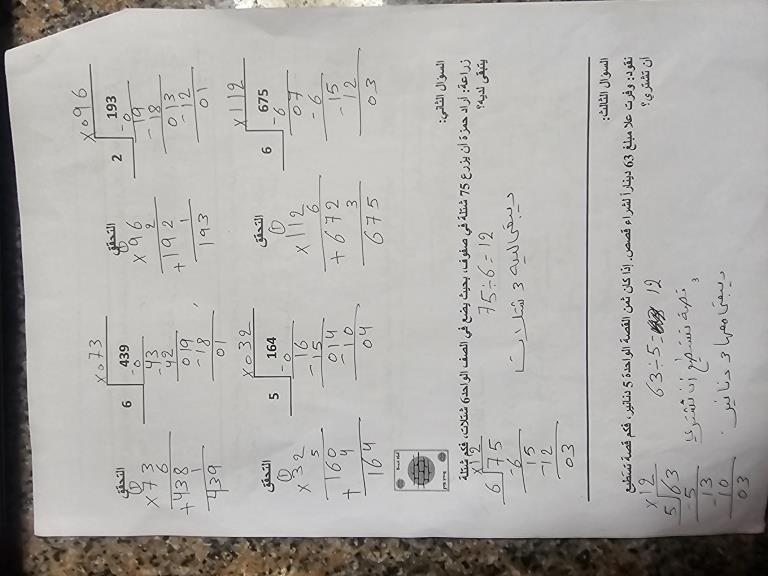 ×073
6 439
-0
43
-42
019
-18
01
التحقق
1
×73
6
+438
1
439
×096
2 193
-0
19
-18
013
-12
01
التحقق
1
×96
2
+192
1
193
×032
5 164
-0
16
-15
014
-10
04
التحقق
1
×32
5
+160
4
164
×112
6 675
-6
07
-6
15
-12
03
التحقق
1
×112
6
+672
3
675
السوال الثاني:
زراعة: أراد حمزة ان يزرع 75 شتلة في صفوف، بحيث يضع في الصف الواحد 6 شتلات، فكم شتلة
يتبقى لديه؟
75÷6=12
×12
6 75
-6
15
-12
03
السوال الثالث:
نقود: وفرت علا مبلغ 63 دينارا لشراء قصص. إذا كان ثمن القصة الواحدة 5 دنانير، فكم قصة تستطيع
ان تشتري؟
63÷5= 12
قصة تستطيع أن تشتري
×12
5 63
-5
13
-10
03
ديبقى معها 3 دنانير